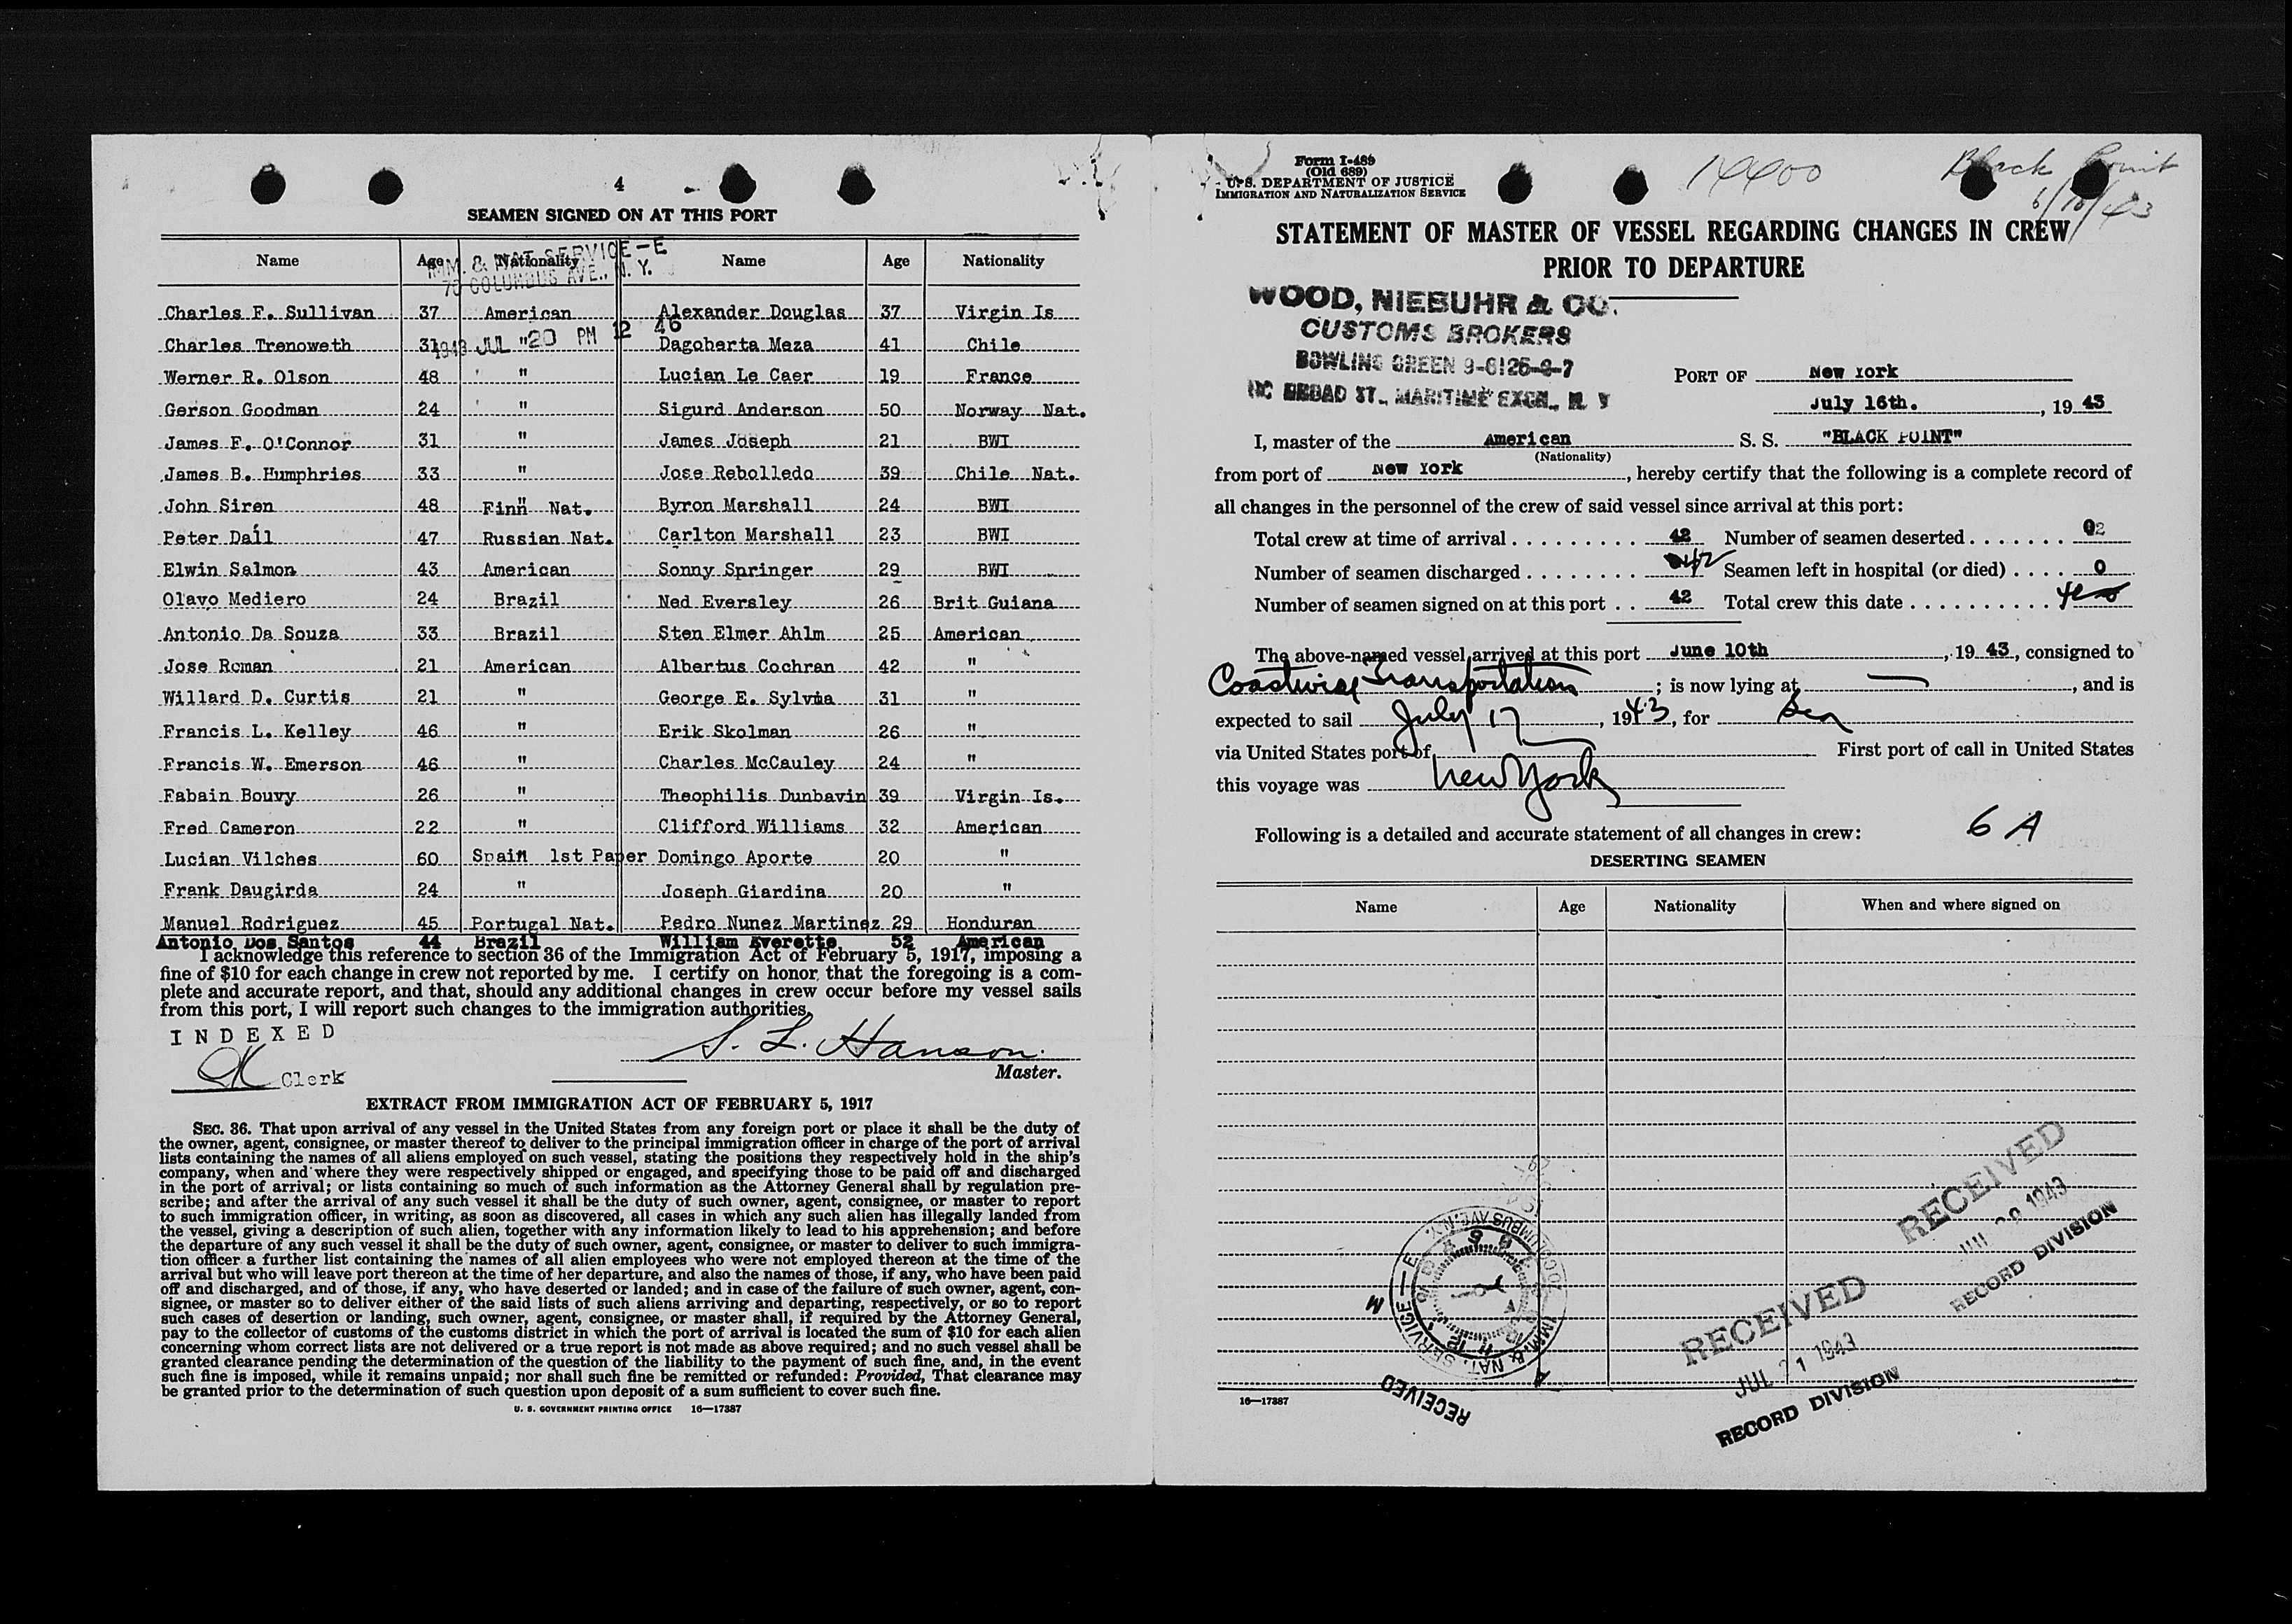 4
SEAMEN SIGNED ON AT THIS PORT
Name Age Nationality Name Age Nationality
IMM. & NAT. SERVICE-E
70 COLUMBUS AVE., N. Y.
1943 JUL 20 PM 12 46
Charles F. Sullivan 37 American Alexander Douglas 37 Virgin Is
Charles Trenoweth 31 " Dagoberta Meza 41 Chile
Werner R. Olson 48 " Lucian Le Caer 19 France
Gerson Goodman 24 " Sigurd Anderson 50 Norway Nat.
James F. O'Connor 31 " James Joseph 21 BWI
James B. Humphries 33 " Jose Rebolledo 39 Chile Nat.
John Siren 48 Finn Nat. Byron Marshall 24 BWI
Peter Dail 47 Russian Nat. Carlton Marshall 23 BWI
Elwin Salmon 43 American Sonny Springer 29 BWI
Olavo Mediero 24 Brazil Ned Eversley 26 Brit Guiana
Antonio Da Souza 33 Brazil Sten Elmer Ahlm 25 American
Jose Roman 21 American Albertus Cochran 42 "
Willard D. Curtis 21 " George E. Sylvia 31 "
Francis L. Kelley 46 " Erik Skolman 26 "
Francis W. Emerson 46 " Charles McCauley 24 "
Fabain Bouvy 26 " Theophilis Dunbavin 39 Virgin Is.
Fred Cameron 22 " Clifford Williams 32 American
Lucian Vilches 60 Spain 1st Paper Domingo Aporte 20 "
Frank Daugirda 24 " Joseph Giardina 20 "
Manuel Rodriguez 45 Portugal Nat. Pedro Nunez Martinez 29 Honduran
Antonio Dos Santos 44 Brazil William Everette 52 American
I acknowledge this reference to section 36 of the Immigration Act of February 5, 1917, imposing a
fine of $10 for each change in crew not reported by me. I certify on honor that the foregoing is a com-
plete and accurate report, and that, should any additional changes in crew occur before my vessel sails
from this port, I will report such changes to the immigration authorities.
INDEXED
S. L. Hanson
Clerk
Master.
EXTRACT FROM IMMIGRATION ACT OF FEBRUARY 5, 1917
SEC. 36. That upon arrival of any vessel in the United States from any foreign port or place it shall be the duty of
the owner, agent, consignee, or master thereof to deliver to the principal immigration officer in charge of the port of arrival
lists containing the names of all aliens employed on such vessel, stating the positions they respectively hold in the ship's
company, when and where they were respectively shipped or engaged, and specifying those to be paid off and discharged
in the port of arrival; or lists containing so much of such information as the Attorney General shall by regulation pre-
scribe; and after the arrival of any such vessel it shall be the duty of such owner, agent, consignee, or master to report
to such immigration officer, in writing, as soon as discovered, all cases in which any such alien has illegally landed from
the vessel, giving a description of such alien, together with any information likely to lead to his apprehension; and before
the departure of any such vessel it shall be the duty of such owner, agent, consignee, or master to deliver to such immigra-
tion officer a further list containing the names of all alien employees who were not employed thereon at the time of the
arrival but who will leave port thereon at the time of her departure, and also the names of those, if any, who have been paid
off and discharged, and of those, if any, who have deserted or landed; and in case of the failure of such owner, agent, con-
signee, or master so to deliver either of the said lists of such aliens arriving and departing, respectively, or so to report
such cases of desertion or landing, such owner, agent, consignee, or master shall, if required by the Attorney General,
pay to the collector of customs of the customs district in which the port of arrival is located the sum of $10 for each alien
concerning whom correct lists are not delivered or a true report is not made as above required; and no such vessel shall be
granted clearance pending the determination of the question of the liability to the payment of such fine, and, in the event
such fine is imposed, while it remains unpaid; nor shall such fine be remitted or refunded: Provided, That clearance may
be granted prior to the determination of such question upon deposit of a sum sufficient to cover such fine.
U. S. GOVERNMENT PRINTING OFFICE 16—17387
Form I-489
(Old 689)
U. S. DEPARTMENT OF JUSTICE
IMMIGRATION AND NATURALIZATION SERVICE
14400
Black Point
6/10/43
STATEMENT OF MASTER OF VESSEL REGARDING CHANGES IN CREW
PRIOR TO DEPARTURE
WOOD, NIEBUHR & CO.
CUSTOMS BROKERS
BOWLING GREEN 9-6125-6-7
BROAD ST., MARITIME EXCH., N. Y
PORT OF New York
July 16th. , 19 43
I, master of the American S. S. "BLACK POINT"
(Nationality)
from port of New York , hereby certify that the following is a complete record of
all changes in the personnel of the crew of said vessel since arrival at this port:
Total crew at time of arrival . . . . . . . . . 42 Number of seamen deserted . . . . . . .
Number of seamen discharged . . . . . . . . 42 Seamen left in hospital (or died) . . . . 0
Number of seamen signed on at this port . . 42 Total crew this date . . . . . . . . . .
The above-named vessel arrived at this port June 10th , 19 43, consigned to
Coastwise Transportation ; is now lying at — , and is
expected to sail July 17 , 1943, for Sea
via United States port of First port of call in United States
this voyage was New York
Following is a detailed and accurate statement of all changes in crew: 6 A
DESERTING SEAMEN
Name Age Nationality When and where signed on
RECEIVED
1943
RECORD DIVISION
RECEIVED
JUL 21 1943
RECORD DIVISION
IMM. & NAT. SERVICE—E
70 COLUMBUS AVE. N.Y.
A M
RECEIVED
16—17387